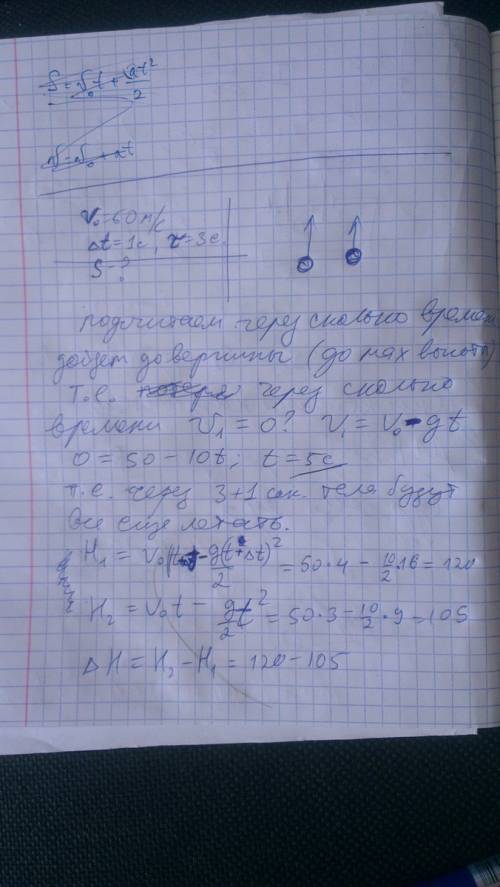 S = v₀t + at²/2
v = v₀ + at
v₀=60 м/с
Δt = 1с, τ = 3с.
S - ?
Подсчитаем через сколько времени
дойдет до вершины (до max высоты)
т.е. через сколько
времени v₁ = 0? v₁ = v₀ - gt
0 = 50 - 10t; t = 5c
т.е. через 3+1 сек. тела будут
все еще летать.
H₁ = v₀ - g(t+Δt)²/2 = 50·4 - 10/2·16 = 120
H₂ = v₀t - gt²/2 = 50·3 - 10/2·9 = 105
ΔH = H₂ - H₁ = 120 - 105